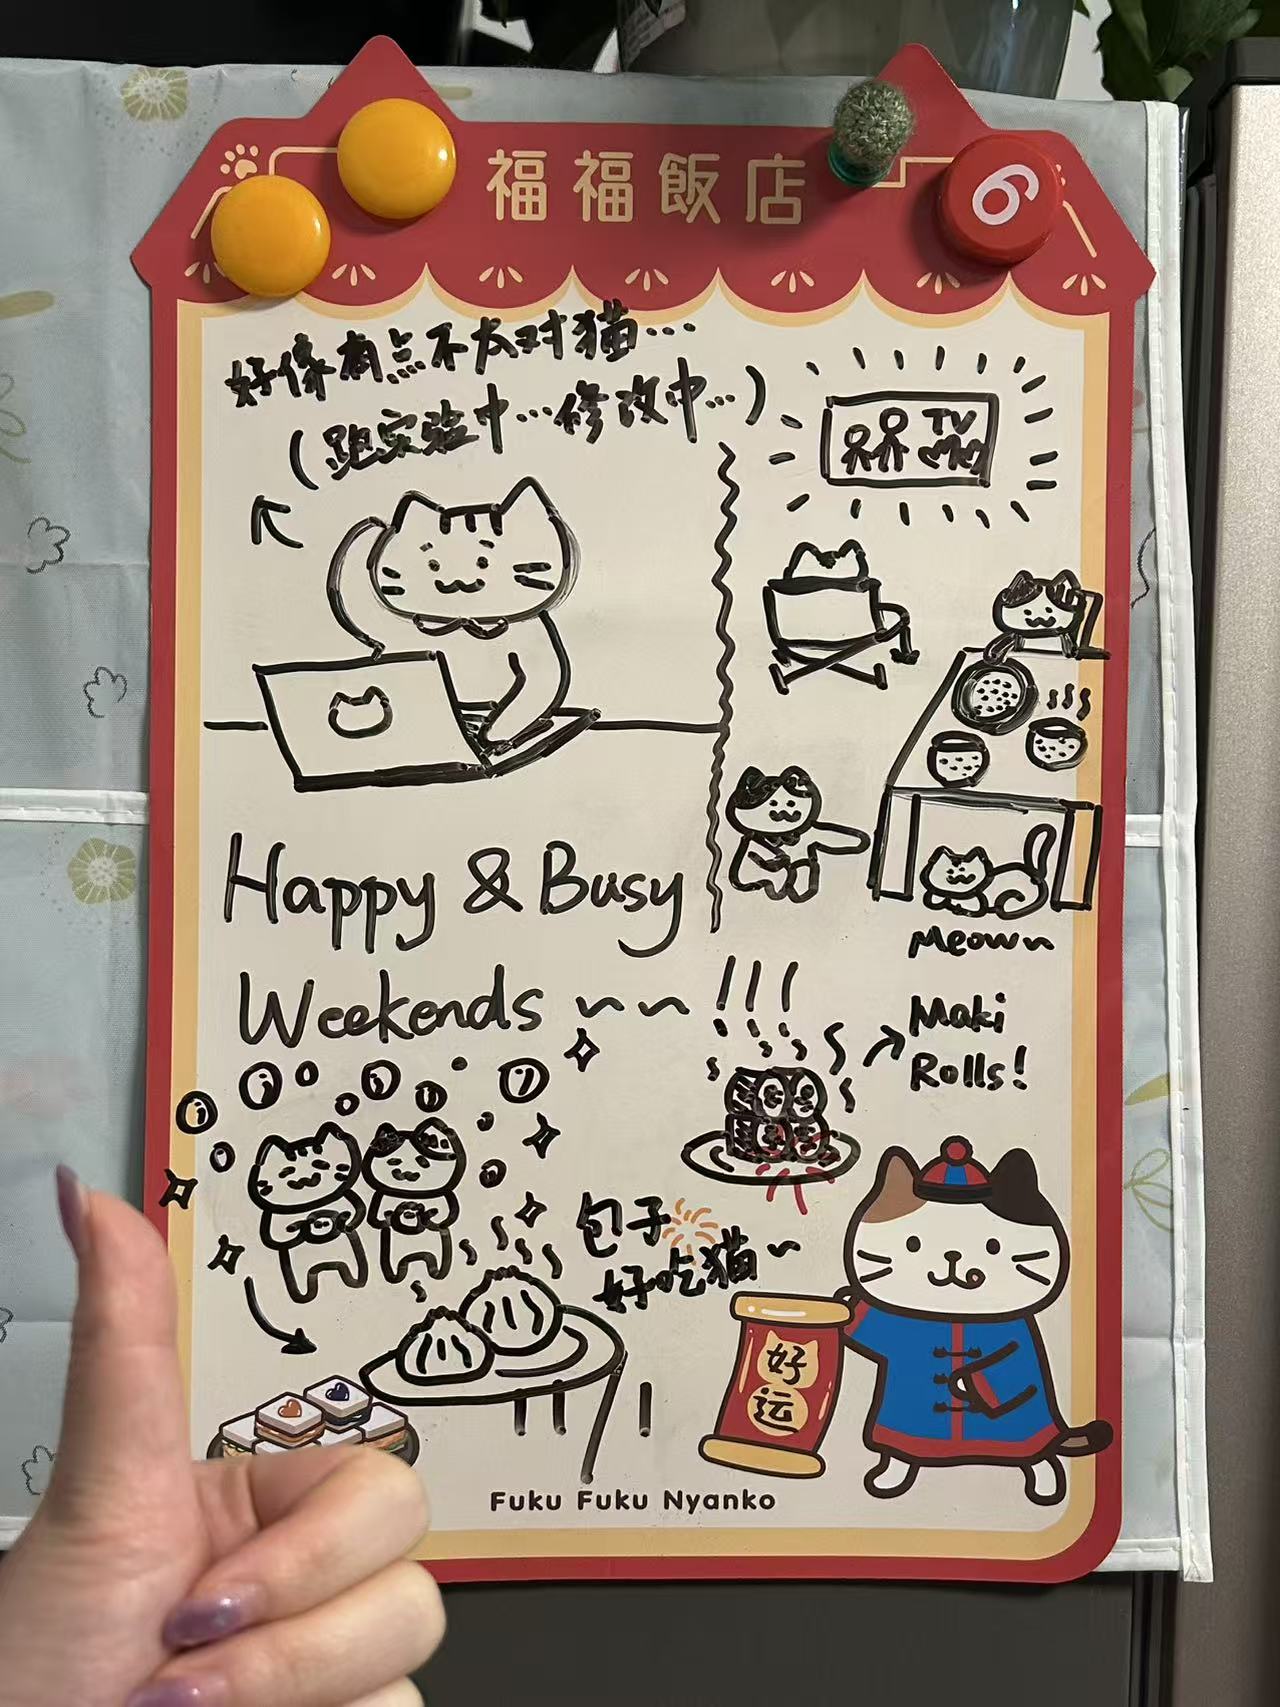 福福飯店
6
好像有点不太对猫…
(跑实验中…修改中…)
TV
Happy & Busy
Weekends ~~
Meown
Maki
Rolls!
包子
好吃猫~
好运
Fuku Fuku Nyanko